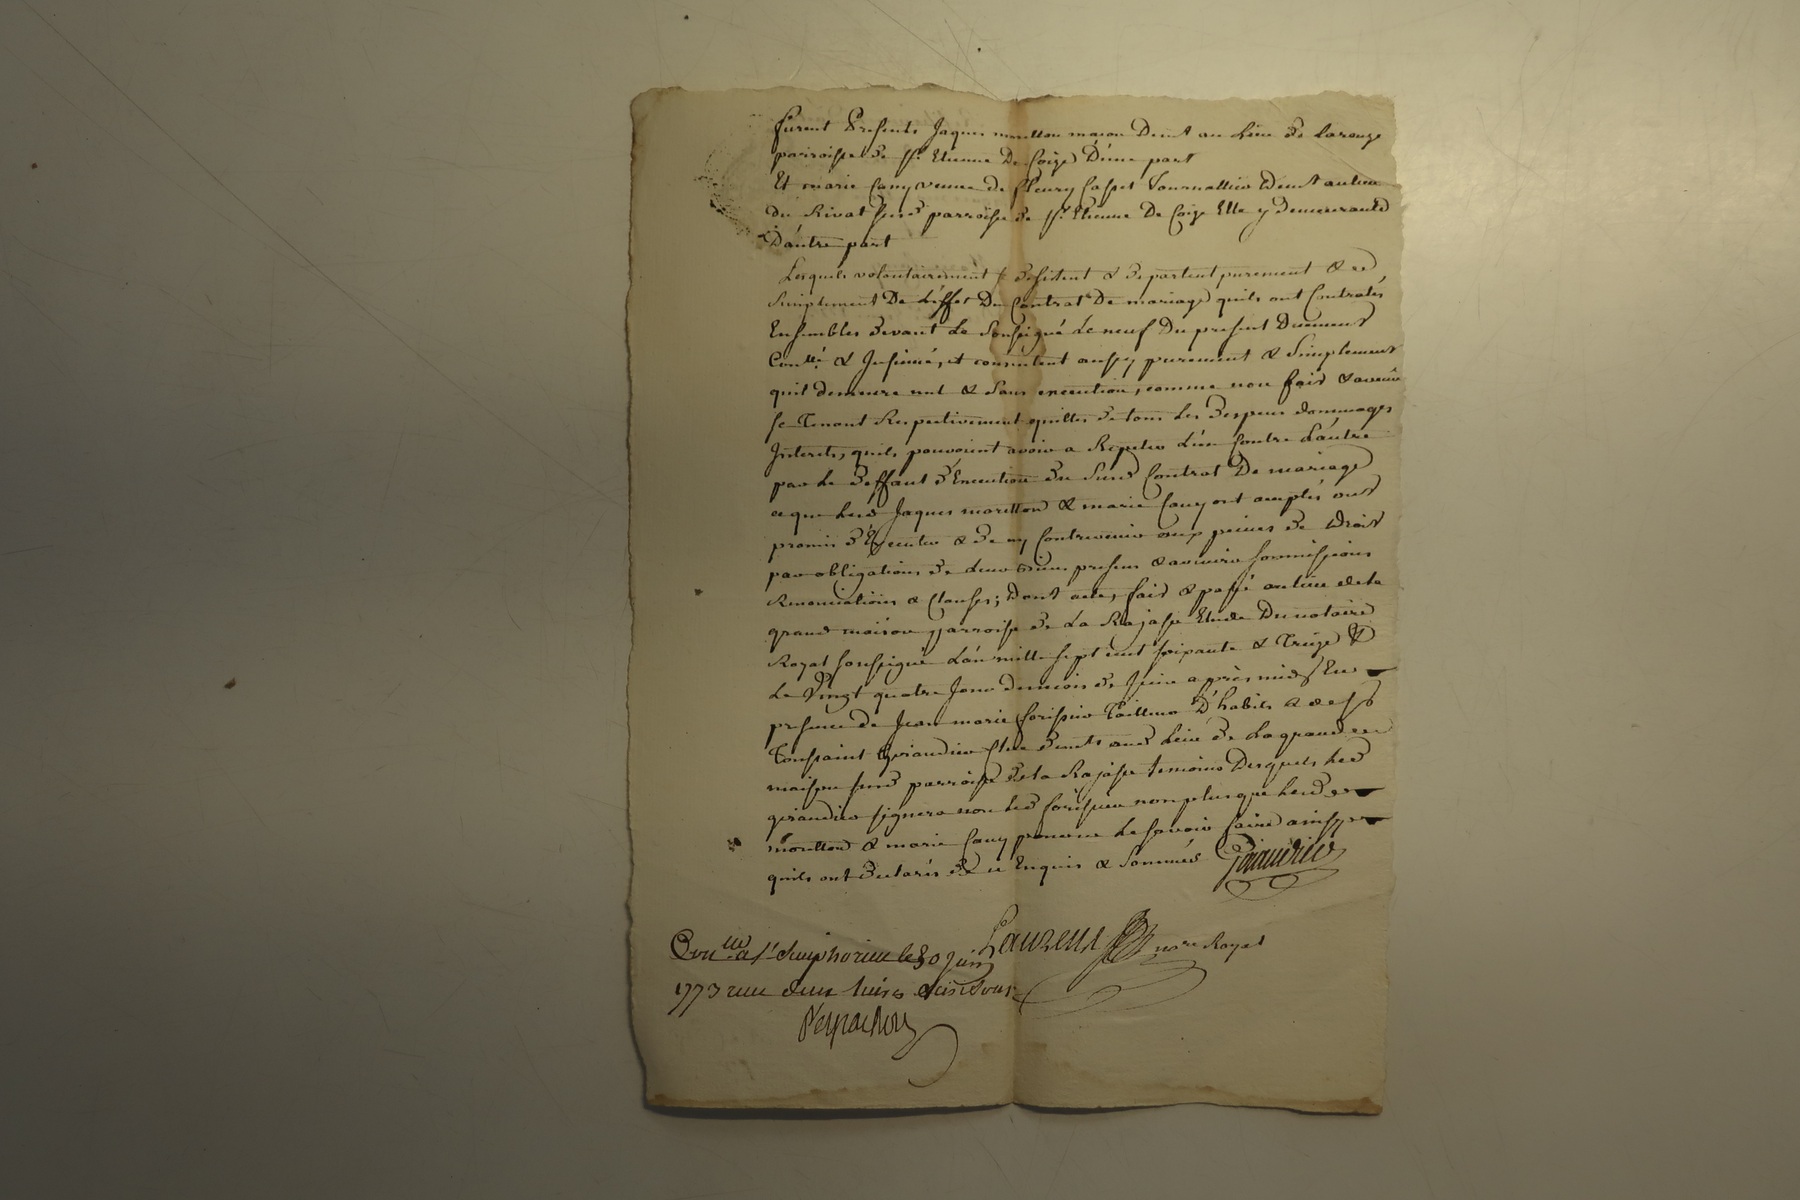 furent Presents Jaques moretton mason Demt au Lieu de Laronze
parroisse de St. Etienne De Coize D'une part
Et marie Cany veuve de fleury Demt au lieu
du Rivat susd parroisse de St. Etienne De Coize Elle y Demeurante
D'autre part
Lesquels volontairement se desistent & departent purement & et
simplement De L'effet Du Contrat De mariage quils ont Contratés
Ensembles devant Le Soussigné Le neuf Du present Duement
Conllé & Insinué, et consentent aussy purement & simplement
quil demeure nul & sans execution, comme non fait & avenu
se Tenant Respectivement quittes de tous Les depens dommages
Interets, quils pouvoient avoir a Repeter L'un Contre L'autre
par Le deffaut d'Execution du susd Contrat De mariage
ce que Lesd Jaques moretton & marie Cany ont acceptés ont
promis d'Executer & de ny Contrevenir aux peines de Droit
par obligations de Leurs biens presens & avenirs soumissions
Renonciations & Clauses; Dont acte, fait & passé au lieu de la
grand maison parroisse de La Rajasse Etude Du notaire
Royal soussigné L'an mille sept cent soixante & Treize &
Le Vingt quatre Jour du mois de Juin après midy En
presence de Jean marie Tailleur D'habits & de Sr
Toussaint Giraudier Clerc demts aud Lieu de La grand
maison susd parroisse de la Rajasse temoins Desquels Led
giraudier signera non Led non plus que Lesd
moretton & marie Cany pour ne Le savoir faire ainsy
quils ont declarés de ce Enquis & Sommés Giraudier
Conllé a St Simphorien le 30 juin Laurent nore Royal
1773 reçu